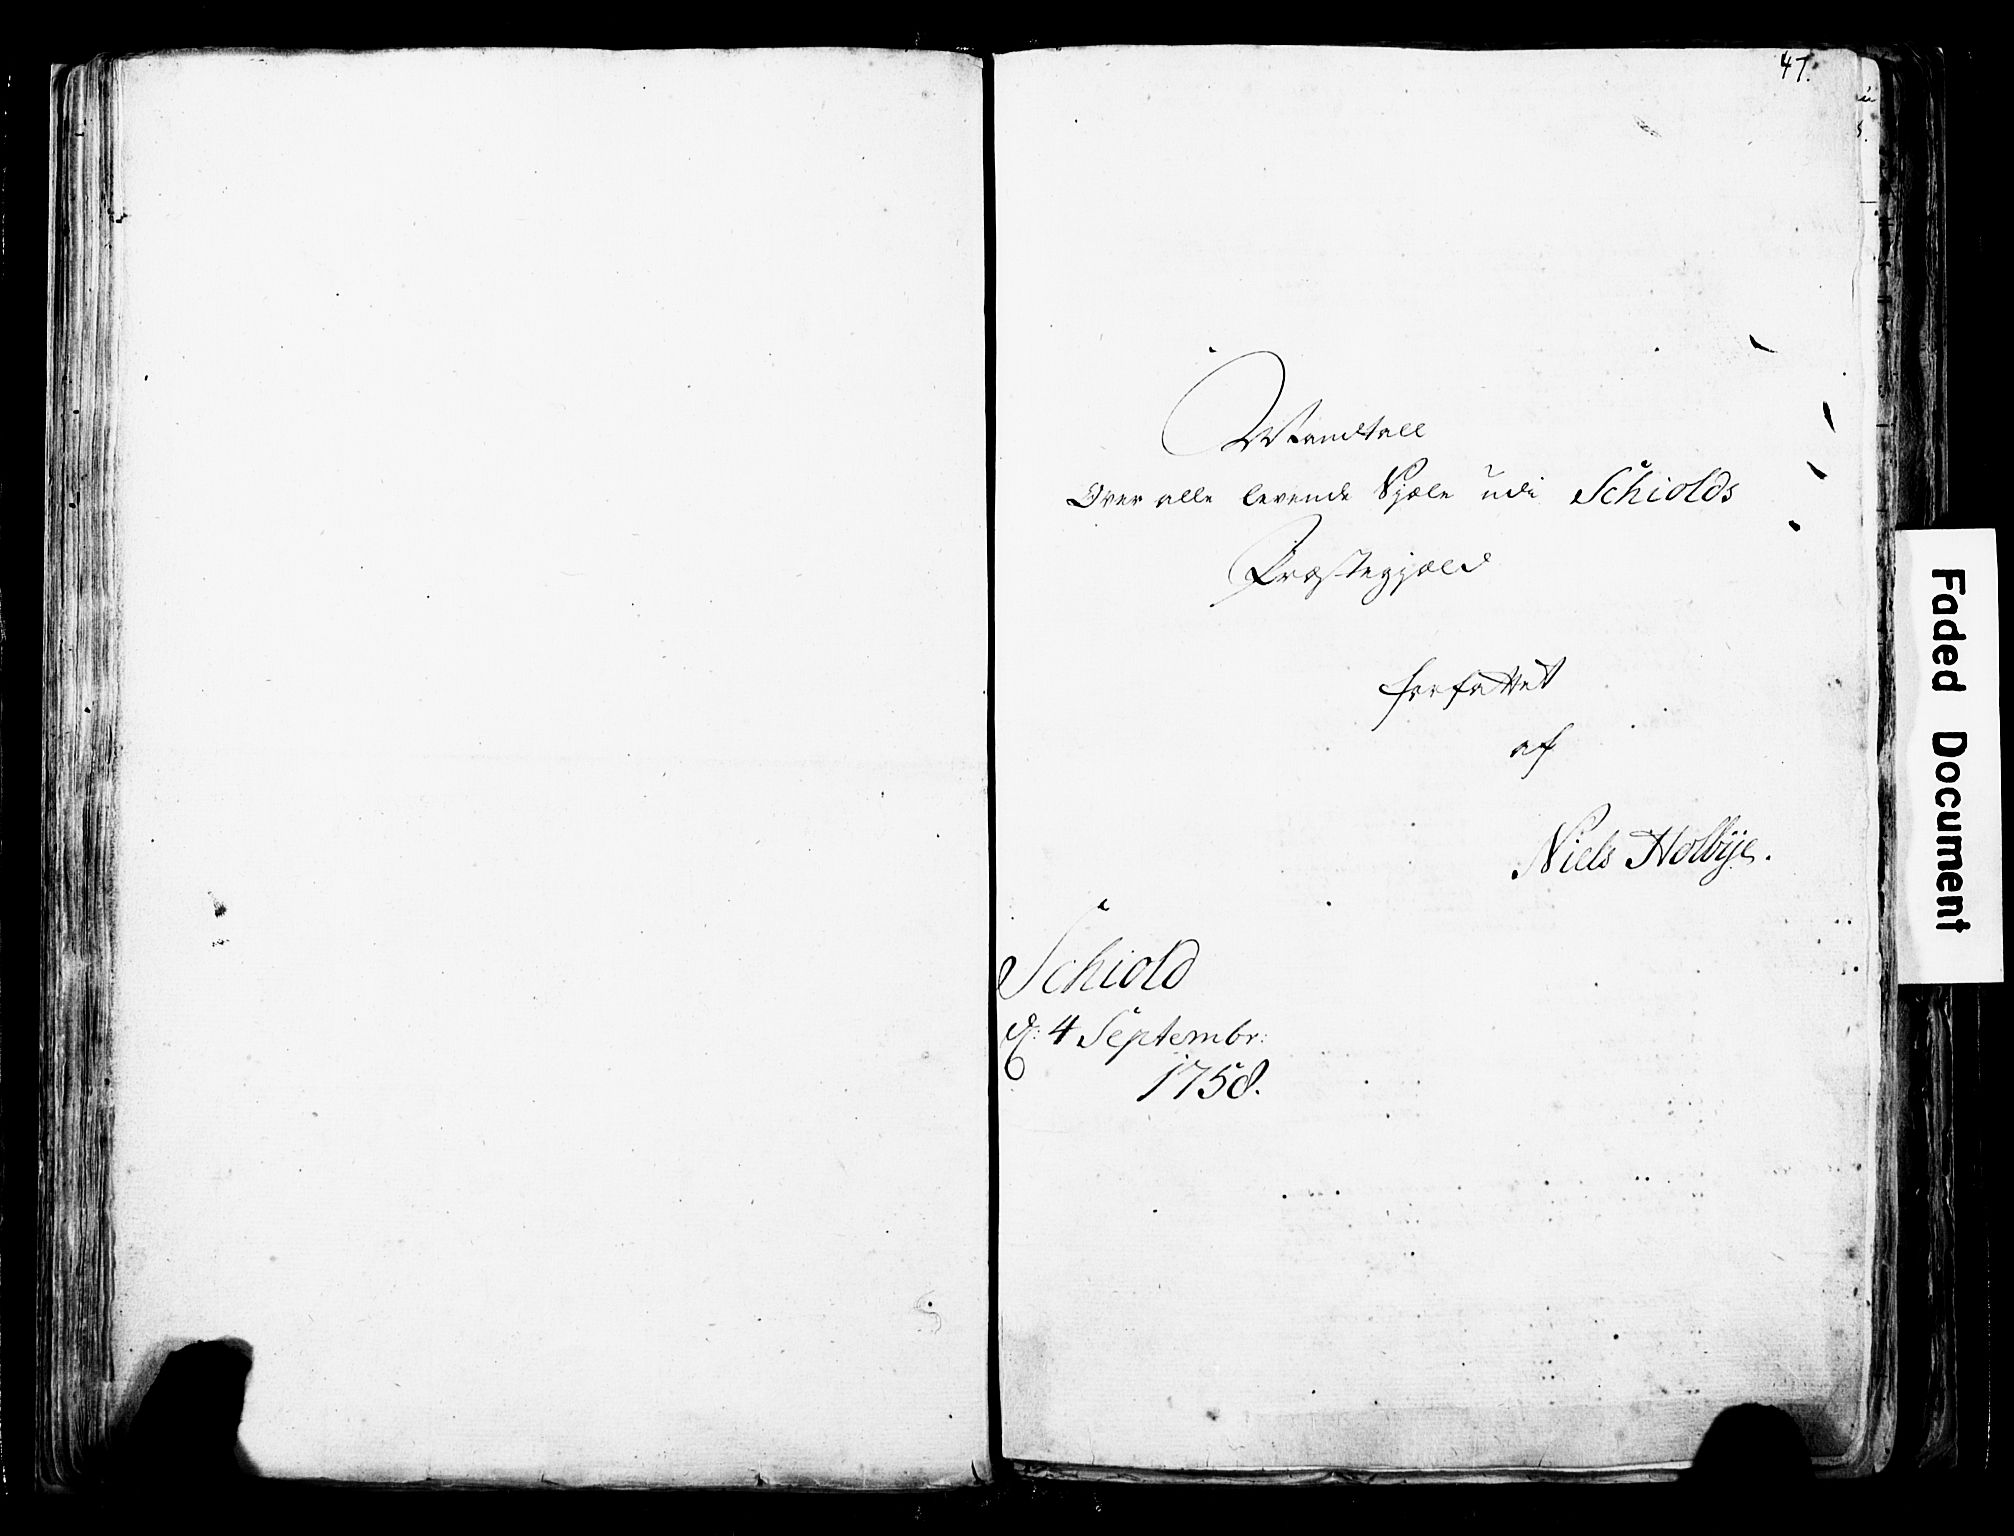 47.
Mandtall
Over alle levende Sjæle udi Schiolds
Præstegjæld
forfattet
af
Niels Holbÿe.
Schiold
d: 4 Septembr:
1758.
Faded Document